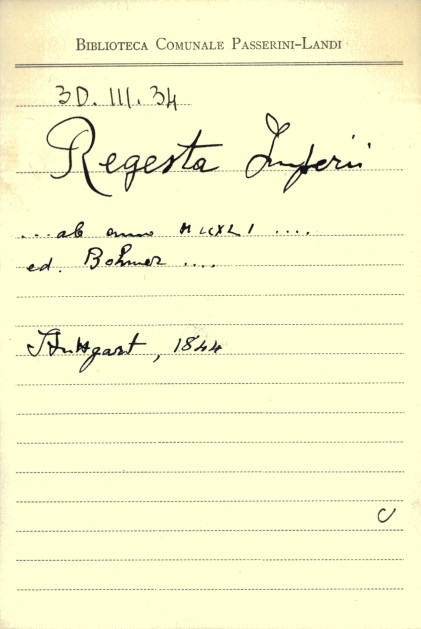 BIBLIOTECA COMUNALE PASSERINI-LANDI
3D. III. 34
Regesta Imperii
... ab anno ....
ed. Böhmer ....
Stuttgart, 1844
C